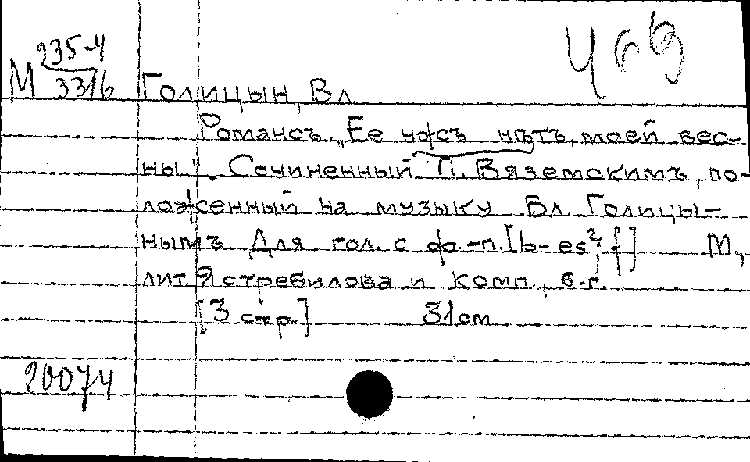 М 235-4
3316
Голицын, Вл
Романсъ „Ее ужъ нѣтъ, моей вес-
ны". Сочиненный П. Вяземскимъ, по-
ложенный на музыку Вл. Голицы-
нымъ Для гол. с фа-п. [b-es²; f] М,
лит Ястребилова и Комп, б.г.
[3 стр.] 31см
20074